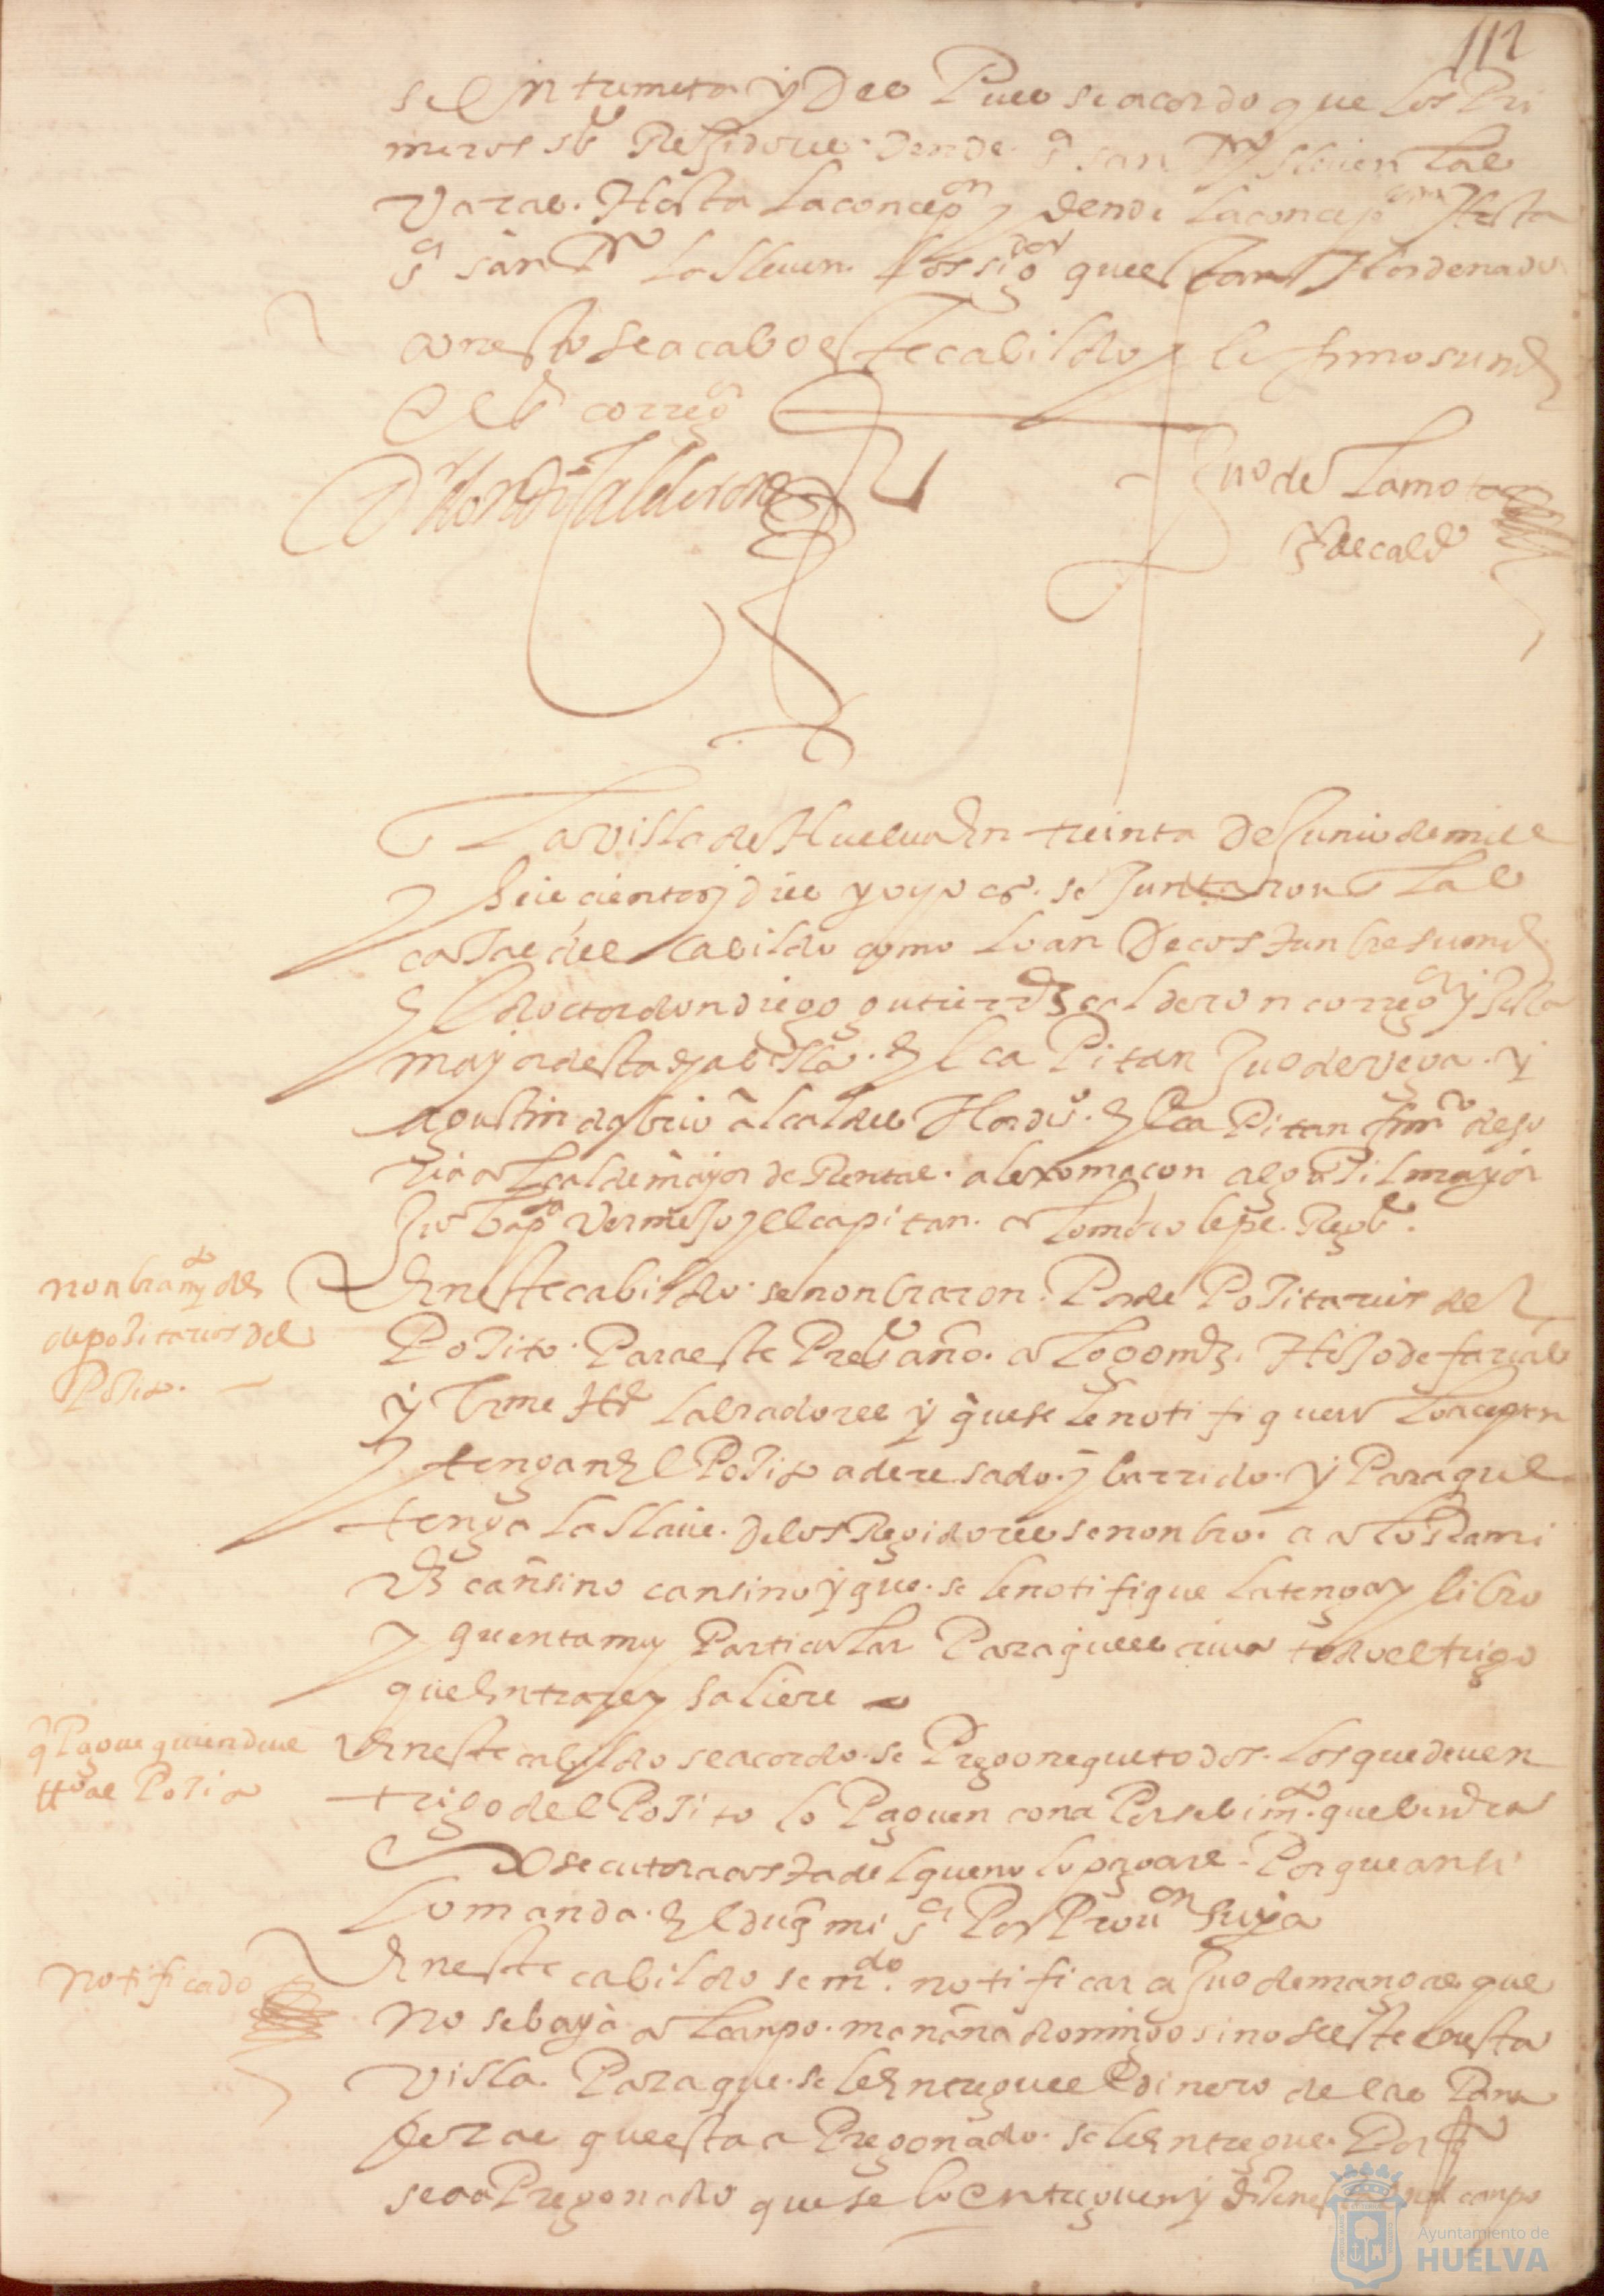 112
se Intrumeta y Deo Pueo se acordo que los Pri
meros sres Regidoreo dende sr san llleuen lao
Varao. Hasta la concepon y dende la concepon Hasta
sr san la lleuen los sigdor que estan Hordenado
con esto se acabo este cabildo y le firmo su md
el sr corregor
Dr don dio Calderon
Juo de la mota
s de cabdo
En la villa de Huelua En treinta de Junio de mill
y Seiscientos y diee y ocho as. se Juntaron En lao
casas del Cabildo como lo an De costunbre su md
El doctor don diego gutierrez calderon corregor y Justa
mayor desta dha billa. El ca Pitan Juo de vega. y
agustin de alcaldeo Hordis. El ca Pitan de so
ria alcalde mayor de Rentas. alexo macon alguasil mayor
Juo bapta Vermejo y el capitan. alonso lepe. Regs.
nonbramto de
depositarios del
Posito.
En este cabildo. se nonbraron. Por de Positarios del
Posito. Para este Prete año. a Hijo de
y labradores y que se le notifiquen lo acepten
y tengan El Posito aderesado. y barrido. y Para que
tenga la llaue. de los Regidoreo se nonbro. a alo Rami
rez cansino cansino y que. se le notifique la tenga y libro
y quenta muy Particular Para que escriua todo el trigo
que Entrare y saliere
q Pague quien deue
tto al Posito
En este cabildo se acordo. se Pregone que todos. los que deuen
trigo del Posito lo Paguen con a Persebimto. que bendra
Esecutor a costa del que no lo pagare. Por que ansi
lo manda. El duq mi sr Por Prouon suya
Notificado
En este cabildo se mdo. notificar a Juo de que
no se baya al canpo. manana domingo sino se este en esta
villa. Para que. se le Entregue El dinero de lao Pana
derae que esta a Pregonado. se le Entregue. Por
se a Pregonado que se lo Entreguen y canpo
Ayuntamiento de
HUELVA